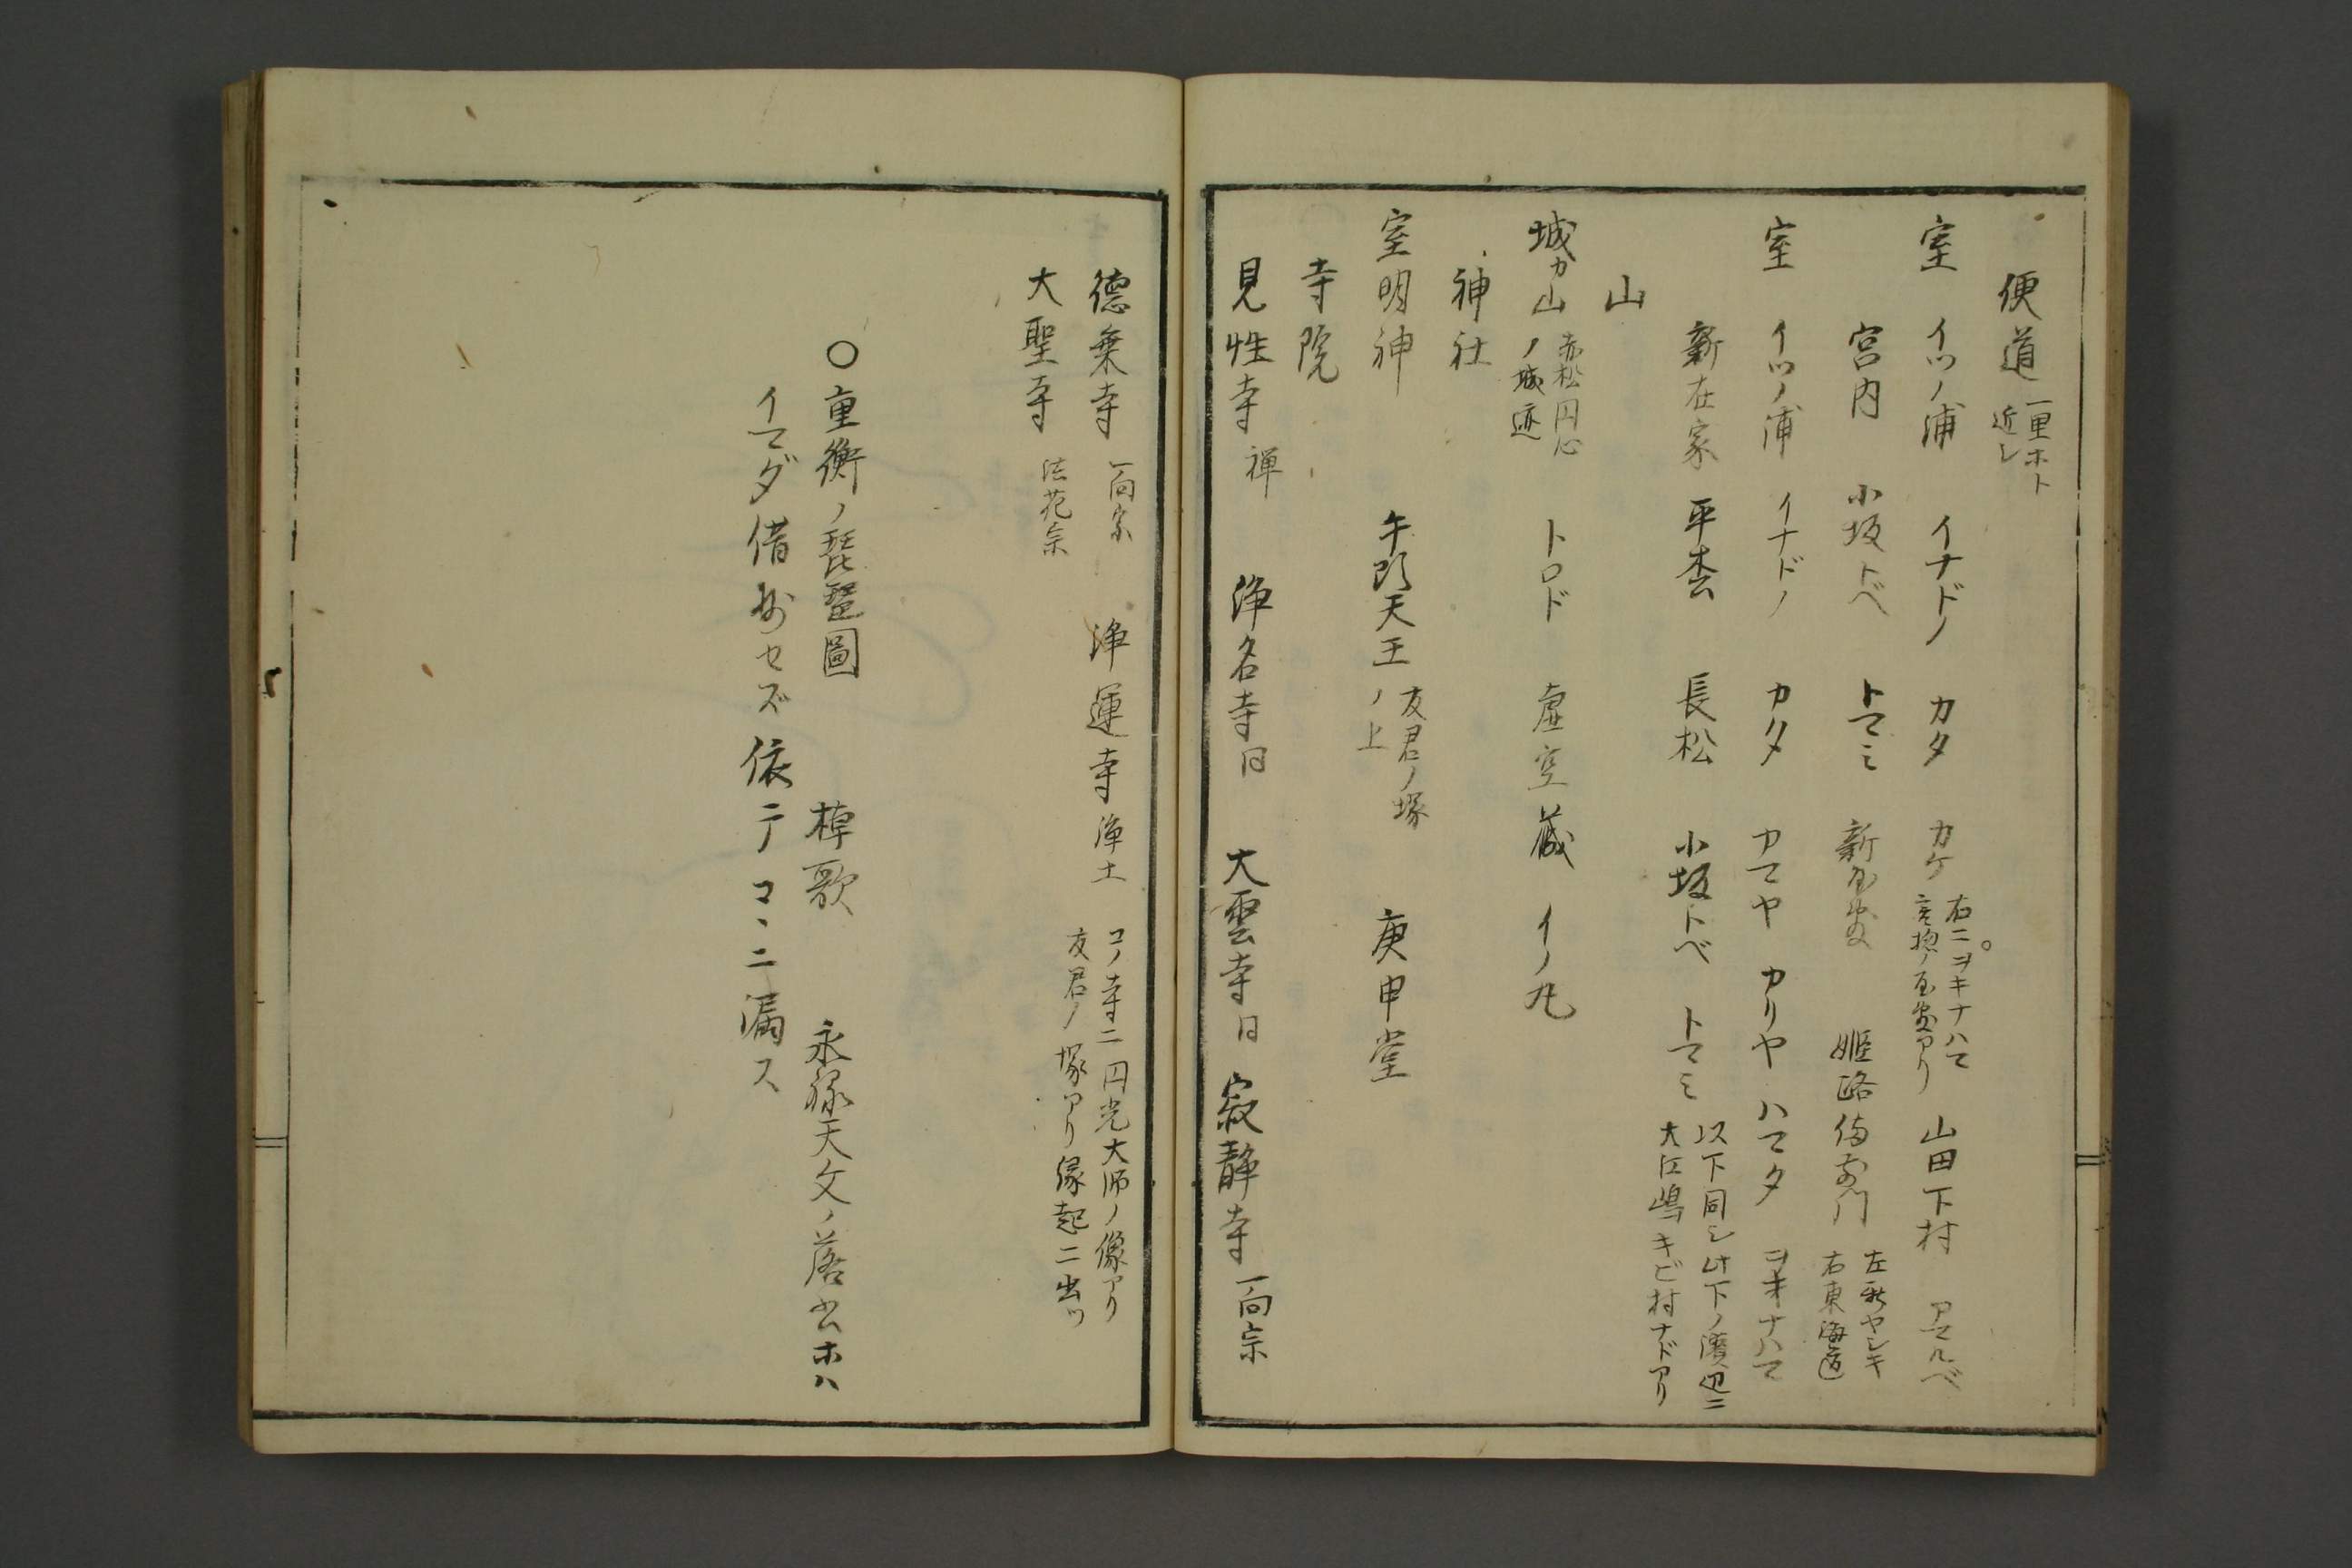 便道 一里ホト近シ
室 イツノ浦 イナドノ カタ カケ 右ニヲキナハマ アリ 山田下村 アマルベ
宮内 小坂トベ トマミ 新在家 姫路 門 左 ヤシキ 右東海道
室 イツノ浦 イナドノ カタ アマヤ カリヤ ハマタ ヲキナハマ
新在家 平松 長松 小坂トベ トマミ 以下同シ此下ノ濱辺ニ大江嶋キビ村ナドアリ
山
城カ山 赤松円心ノ城迹 トロド 虚空蔵 イノ丸
神社
室明神 牛頭天王 友君ノ塚ノ上 庚申堂
寺院
見性寺 禅 浄名寺 同 大雲寺 同 寂静寺 一向宗
徳乗寺 一向宗 浄運寺 浄土 コノ寺ニ円光大師ノ像アリ友君ノ塚アリ縁起ニ出ツ
大聖寺 法花宗
○重衡ノ琵琶圖 棹歌 永禄天文ノ落書ホハ
イマダ借抄セズ依テコヽニ漏ス